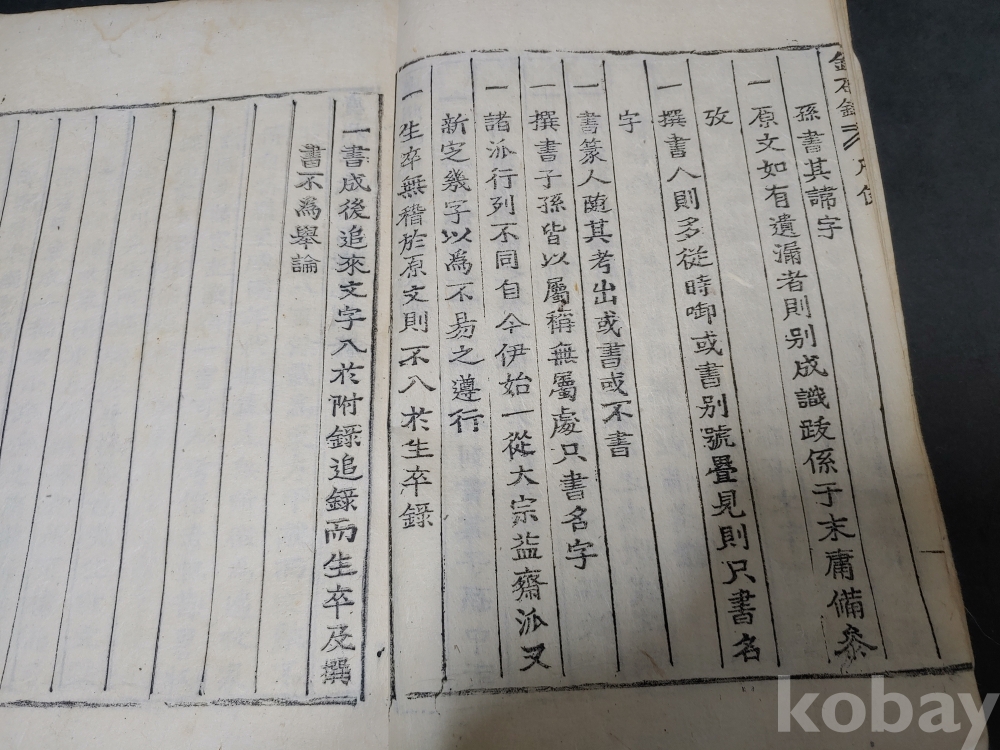 金石錄 凡例
孫書其諱字
一 原文如有遺漏者則別成識跋係于末庸備叅
攷
一 撰書人則多從時啣或書別號疊見則只書名
字
一 書篆人隨其考出或書或不書
一 撰書子孫皆以屬稱無屬處只書名字
一 諸派行列不同自今伊始一從大宗益齋派又
新定幾字以爲不易之遵行
一 生卒無稽於原文則不入於生卒錄
一 書成後追來文字入於附錄追錄而生卒及撰
書不爲舉論
kobay